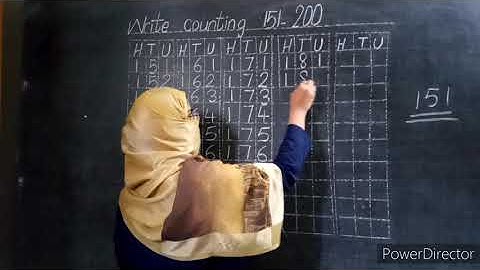 Write counting 151-200
H T U H T U H T U H T U H T U
1 5 1 1 6 1 1 7 1 1 8 1
1 5 2 1 6 2 1 7 2 1 8
6 3 1 7 3
4 1 7 4
5 1 7 5
6 1 7 6
151
PowerDirector